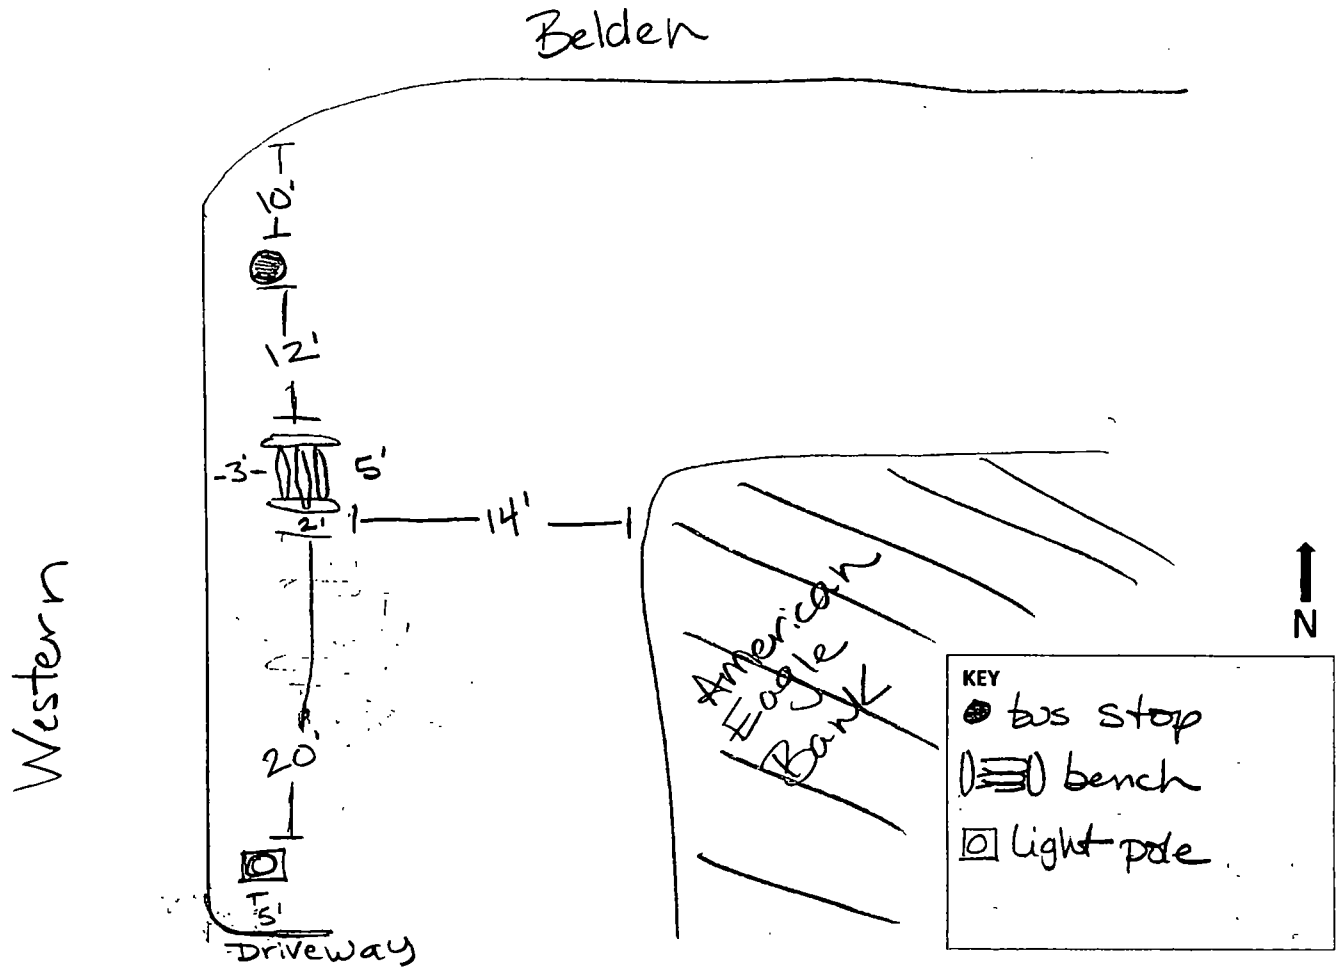 Belden
10'
12'
-3'-
5'
2'
14'
20'
5'
Driveway
Western
American
Eagle
Bank
N
KEY
bus stop
bench
light pole